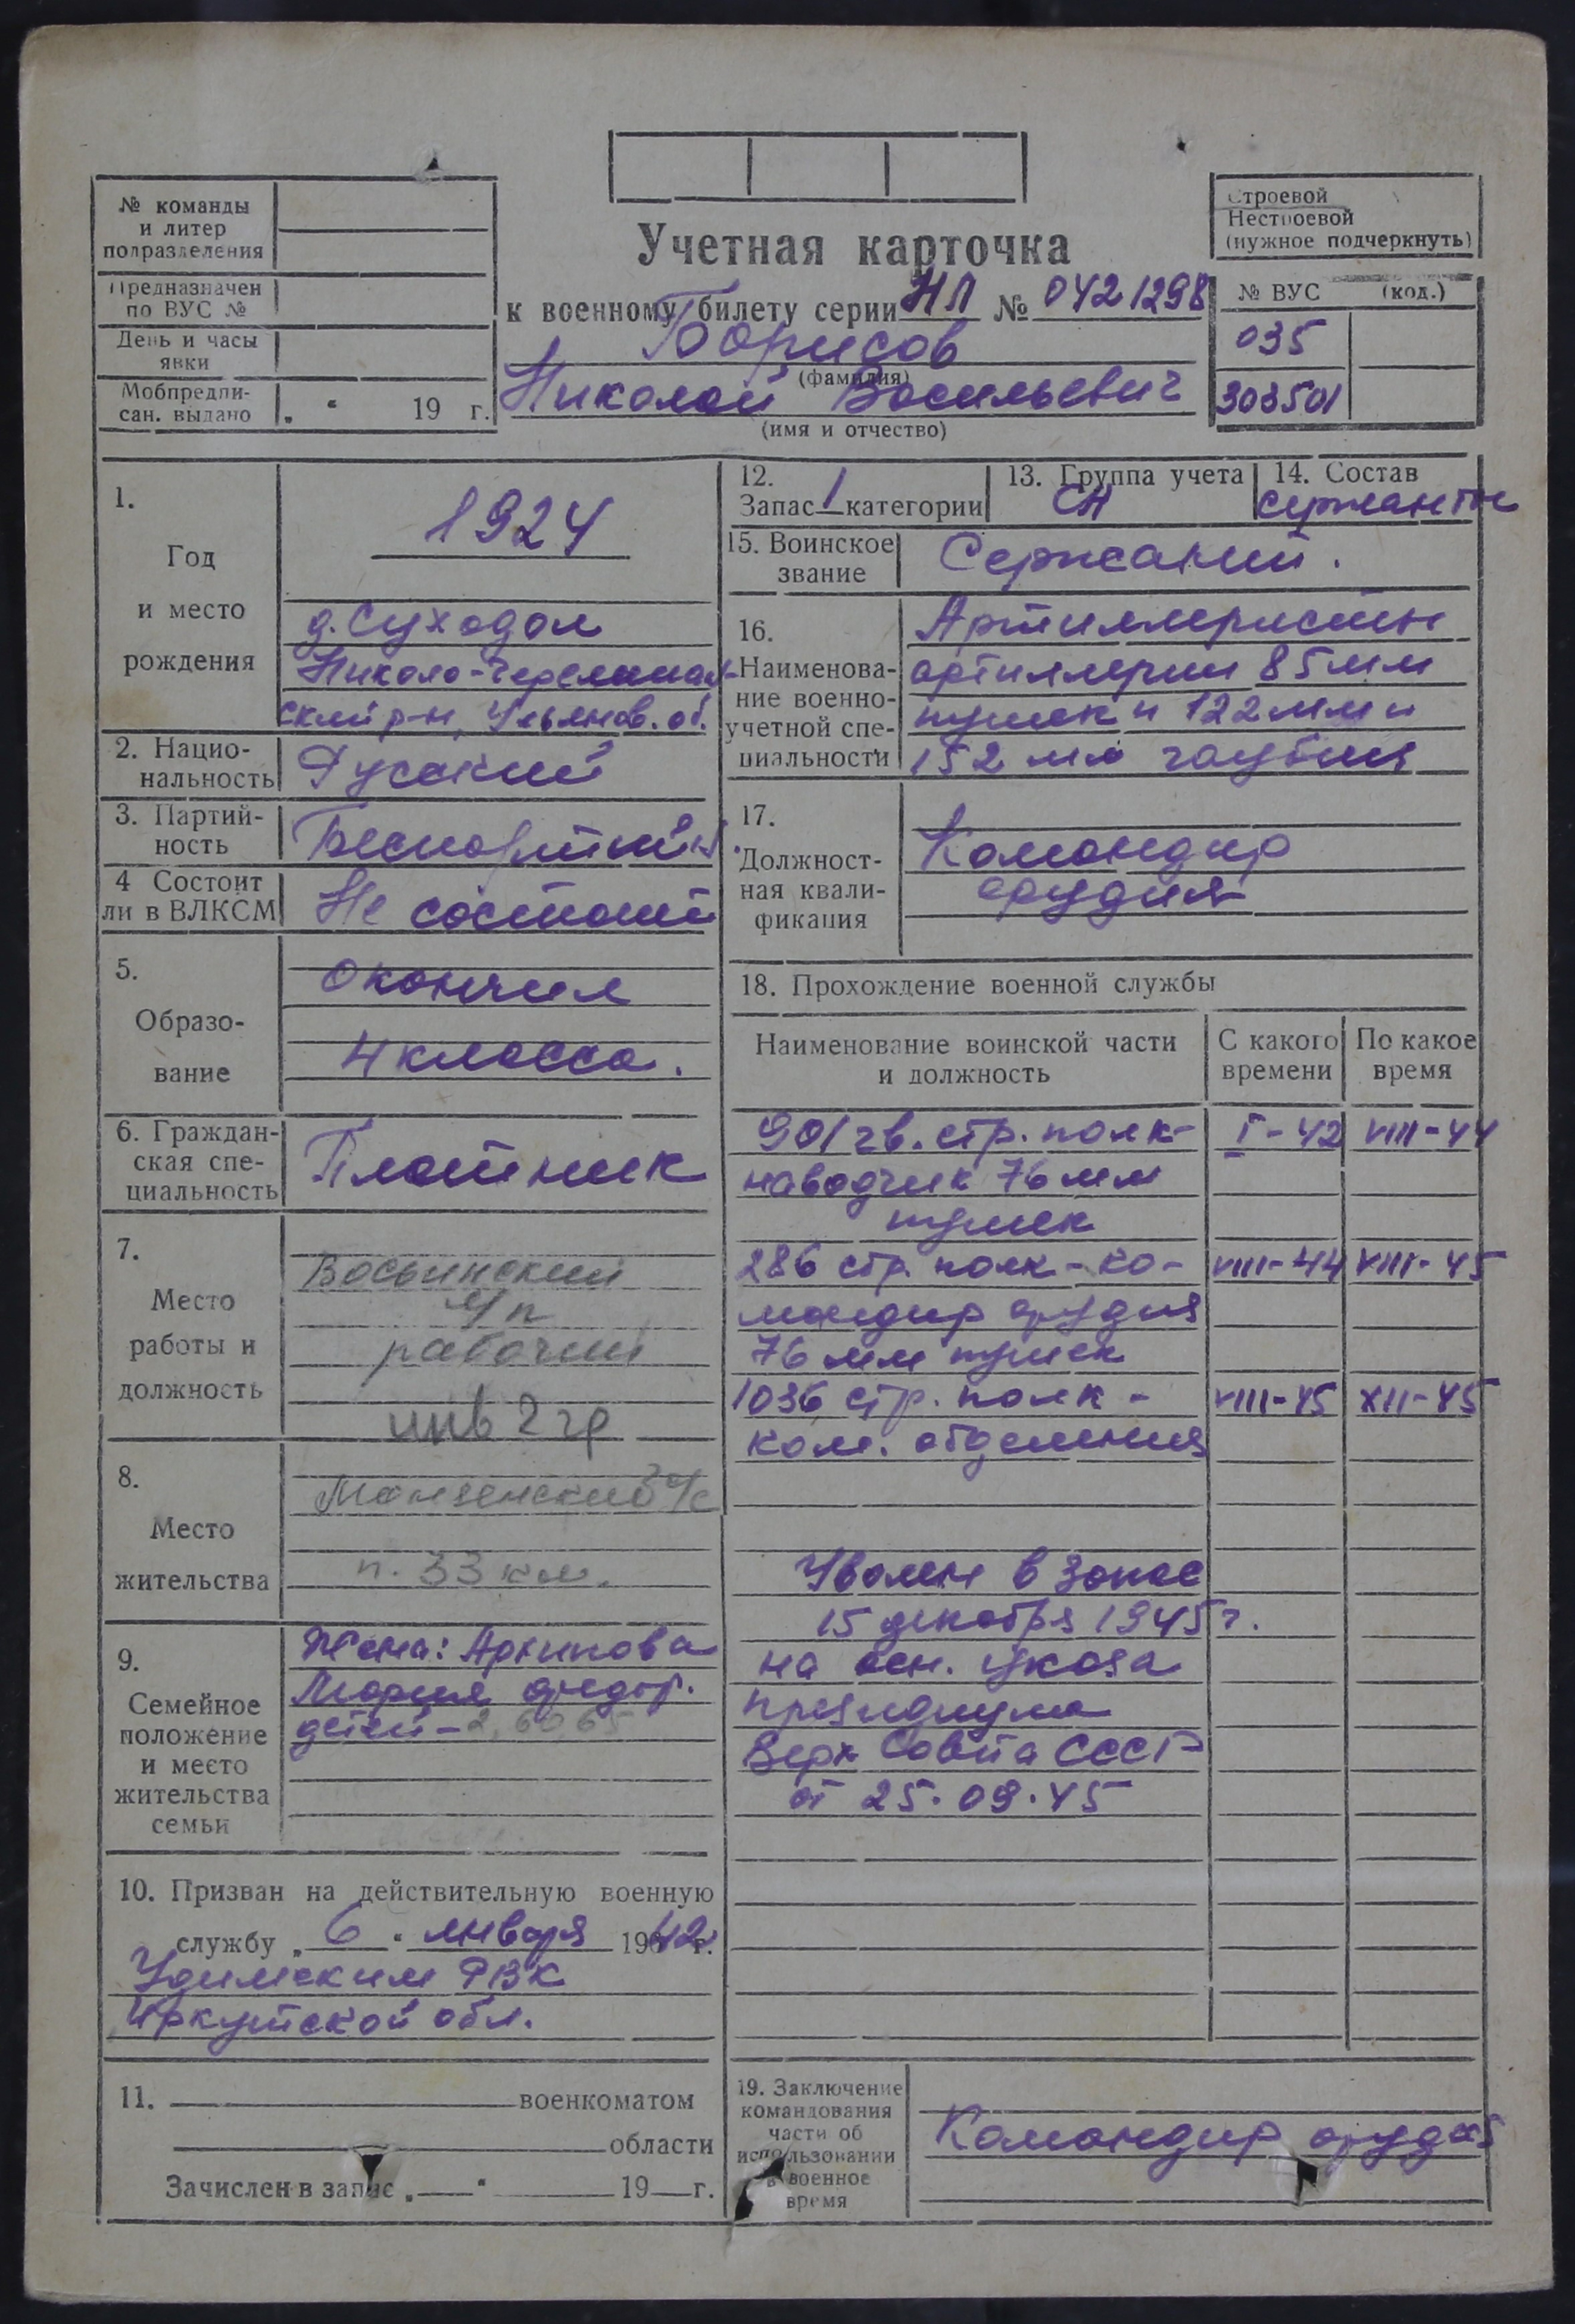 № команды
и литер
подразделения
Предназначен
по ВУС №
День и часы
явки
Мобпредпи-
сан. выдано „ “ 19 г.
Учетная карточка
к военному билету серии НЛ № 0421298
Борисов
(фамилия)
Николай Васильевич
(имя и отчество)
Строевой
Нестроевой
(нужное подчеркнуть)
№ ВУС (код.)
035
303501
1.
Год
и место
рождения
1924
д. Суходол
Николо-Черемшан-
ский р-н, Ульянов. об.
2. Нацио-
нальность
Русский
3. Партий-
ность
Беспартийн.
4 Состоит
ли в ВЛКСМ
Не состоит
5.
Образо-
вание
Окончил
4 класса.
6. Граждан-
ская спе-
циальность
Плотник
7.
Место
работы и
должность
рабочий
инв 2 гр
8.
Место
жительства
Манзенский с/с
п. 33 км.
9.
Семейное
положение
и место
жительства
семьи
Жена: Архипова
Мария Федор.
детей - 2, 60, 65
10. Призван на действительную военную
службу „ 6 “ января 1942 г.
РВК
Иркутской обл.
11. военкоматом
области
Зачислен в запас „ — “ 19 — г.
12.
Запас 1 категории
13. Группа учета
СА
14. Состав
сержанты
15. Воинское
звание
Сержант.
16.
Наименова-
ние военно-
учетной спе-
циальности
Артиллеристы
артиллерии 85 мм
пушек и 122 мм и
152 мм гаубиц
17.
Должност-
ная квали-
фикация
Командир
орудия
18. Прохождение военной службы
Наименование воинской части
и должность
С какого
времени
По какое
время
901 гв. стр. полк- I-42 VIII-44
наводчик 76 мм
пушек
286 стр. полк - ко- VIII-44 VIII-45
мандир орудия
76 мм пушек
1036 стр. полк - VIII-45 XII-45
ком. отделения
Уволен в запас
15 декабря 1945 г.
на осн. указа
президиума
Верх Совета СССР
от 25.09.45
19. Заключение
командования
части об
использовании
в военное
время
Командир орудия